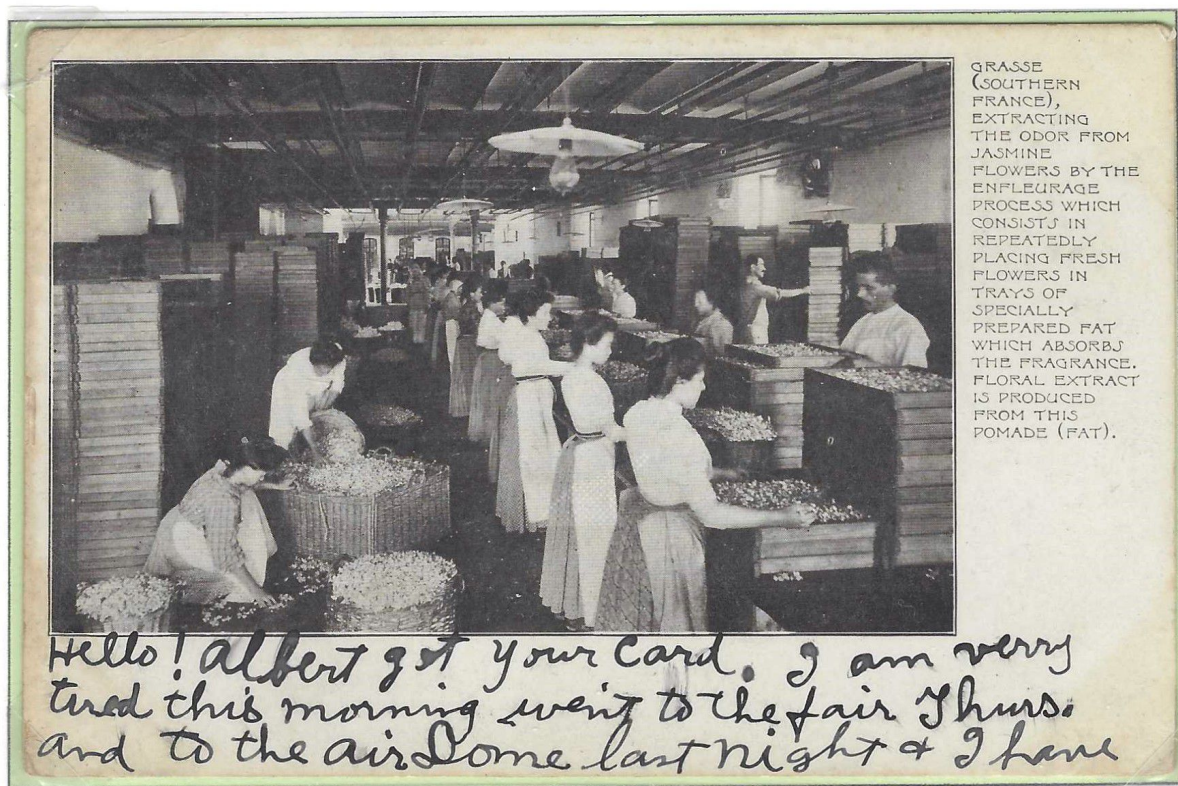 GRASSE
(SOUTHERN
FRANCE),
EXTRACTING
THE ODOR FROM
JASMINE
FLOWERS BY THE
ENFLEURAGE
PROCESS WHICH
CONSISTS IN
REPEATEDLY
PLACING FRESH
FLOWERS IN
TRAYS OF
SPECIALLY
PREPARED FAT
WHICH ABSORBS
THE FRAGRANCE.
FLORAL EXTRACT
IS PRODUCED
FROM THIS
POMADE (FAT).
Hello! Albert got your card. I am verry
tired this morning went to the fair Thurs.
and to the airDome last night + I have